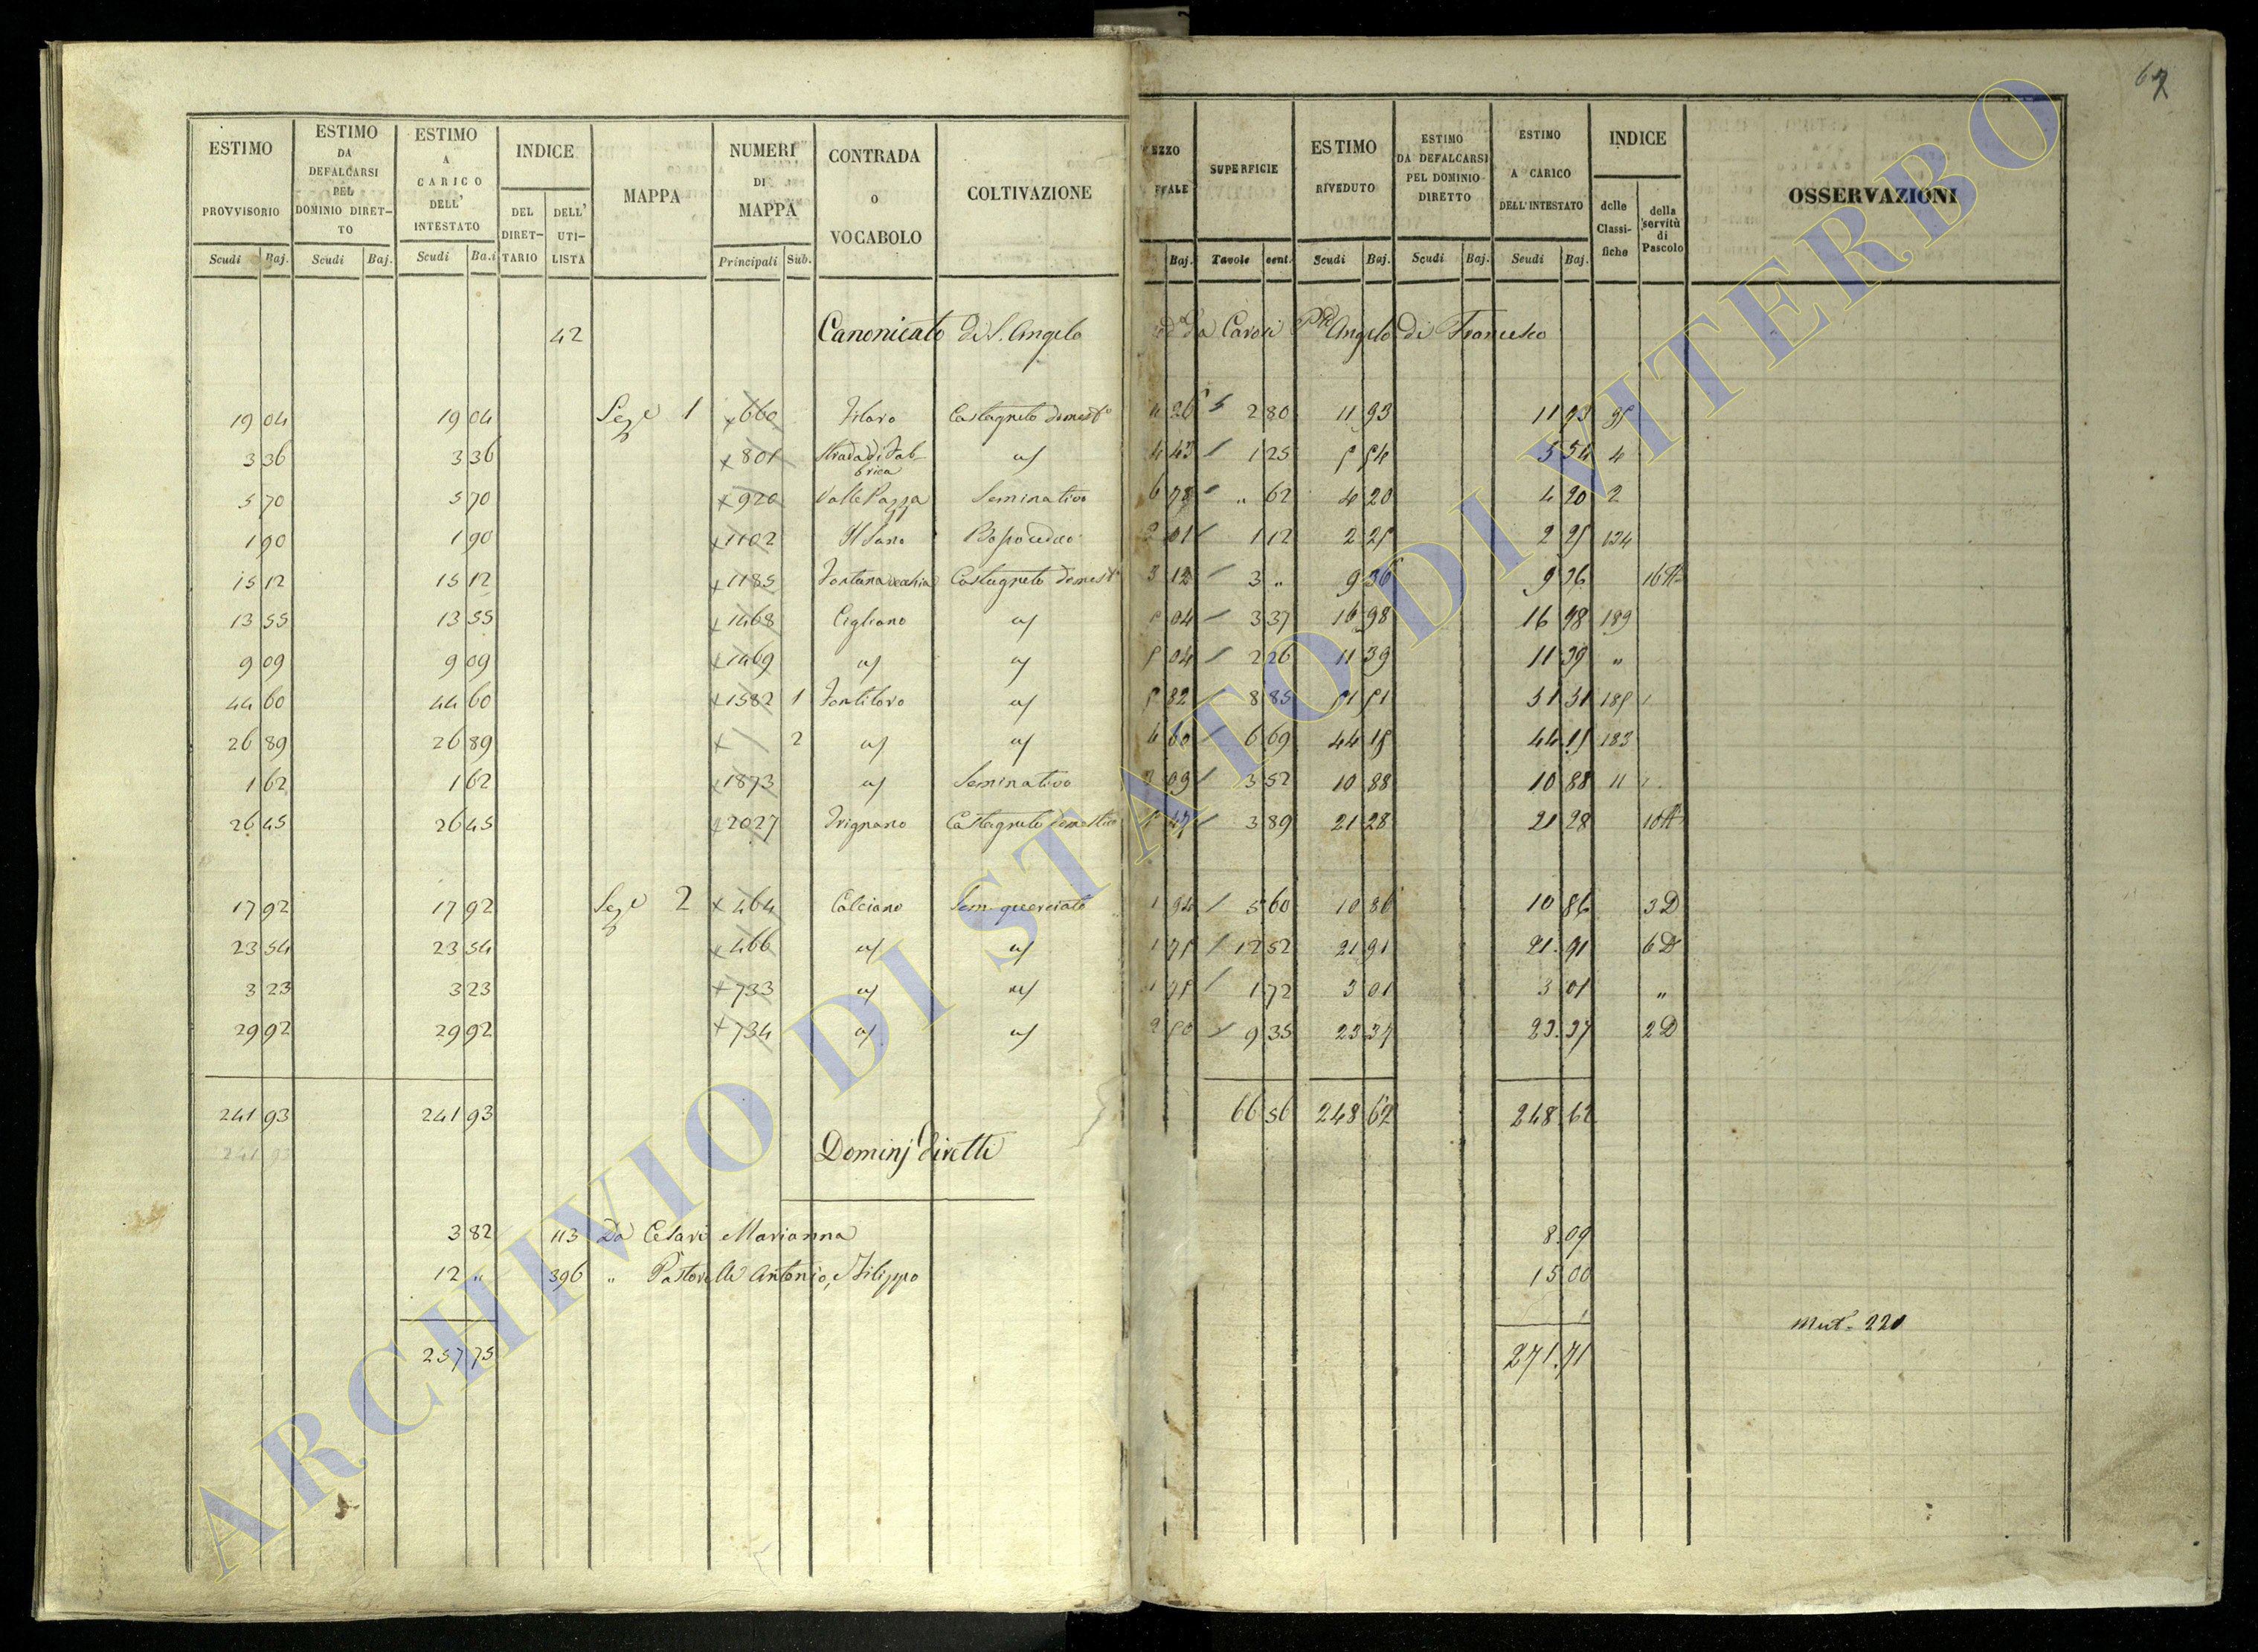 67
ESTIMO PROVVISORIO Scudi Baj.
ESTIMO DA DEFALCARSI PEL DOMINIO DIRETTO Scudi Baj.
ESTIMO A CARICO DELL' INTESTATO Scudi Ba.i
INDICE DEL DIRETTARIO DELL' UTILISTA
MAPPA
NUMERI DI MAPPA Principali Sub.
CONTRADA o VOCABOLO
COLTIVAZIONE
EZZO Baj.
SUPERFICIE Tavole cent.
ESTIMO RIVEDUTO Scudi Baj.
ESTIMO DA DEFALCARSI PEL DOMINIO DIRETTO Scudi Baj.
ESTIMO A CARICO DELL'INTESTATO Scudi Baj.
INDICE delle Classifiche della servitù di Pascolo
OSSERVAZIONI
42 Canonicato di S. Angelo Angelo di Francesco
19 04 19 04 Sez.e 1 660 Castagneto domest.o 26 2 80 11 93 11 93
3 36 3 36 801 Strada di Fabbrica 4 43 1 25 5 54 5 54 4
5 70 5 70 920 Valle Pazza Seminativo 6 78 „ 62 4 20 4 20 2
1 90 1 90 1102 01 1 12 2 25 2 25 134
15 12 15 12 1185 Fontana vecchia Castagneto domest.o 3 12 3 „ 9 36 9 36 16
13 55 13 55 1468 Cigliano 5 04 3 37 16 98 16 98 189
9 09 9 09 1469 5 04 2 26 11 39 11 39 „
44 60 44 60 1582 1 5 82 8 85 51 51 51 51 185
26 89 26 89 2 6 60 6 69 44 15 44 15 183
1 62 1 62 1873 Seminativo 3 09 3 52 10 88 10 88 11
26 45 26 45 2027 Trignano Castagneto domestico 5 47 3 89 21 28 21 28
17 92 17 92 Sez.e 2 464 Calciano Sem. querciato 1 94 5 60 10 86 10 86 3 D
23 54 23 54 466 1 75 12 52 21 91 21 91 6 D
3 23 3 23 733 1 75 1 72 3 01 3 01 „
29 92 29 92 734 2 50 9 35 23 37 23 37 2 D
241 93 241 93 66 56 248 62 248 62
241 93
Dominj diretti
3 82 113 Da Cesari Marianna 8.09
12 „ 396 „ Antonio, e Filippo 15 00
257 75 271.71
Mut. 220
ARCHIVIO DI STATO DI VITERBO